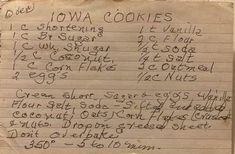 IOWA COOKIES
1 C Shortening 1 t Vanilla
1 C Br Sugar 2 C Flour
1 C Why Shugar ½ t Soda
½ C Coconut, ¼ t Salt
1 C Corn Flakes 3 c Oatmeal
2 eggs ½ C Nuts
Cream Short, Sugar & eggs Vanilla
Flour Salt, Soda - Sifted
Coconut, Oats, Corn Flakes (Crushed
& nuts Drop on greased sheet
Dont overbake
350° - 5 to 10 min.